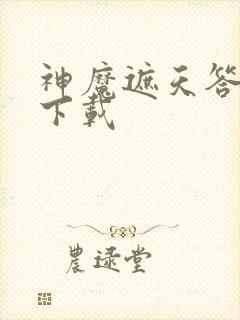 神魔遮天答
下载
農逯堂